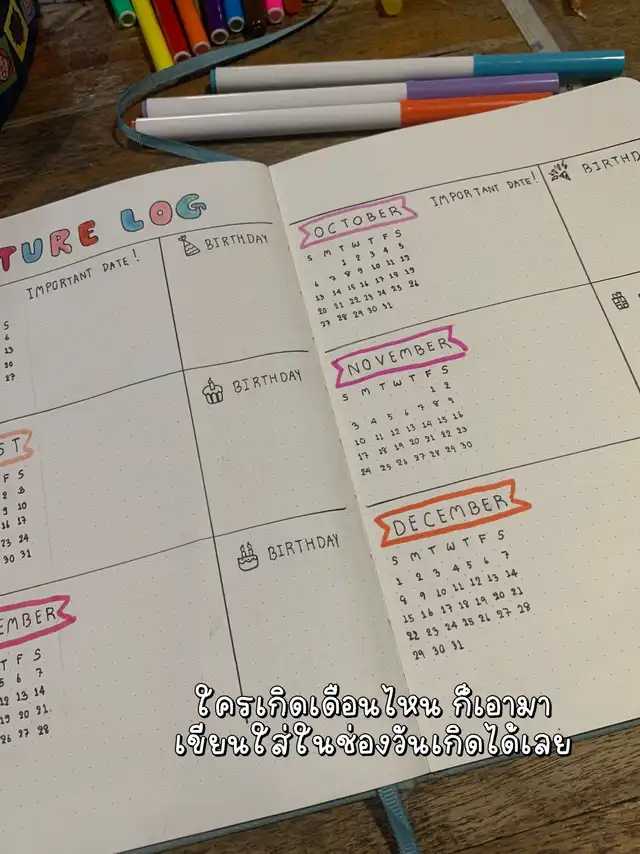 TURE LOG
IMPORTANT DATE!
BIRTHDAY
S
6
13
20
27
ST
BIRTHDAY
F S
2 3
9 10
16 17
23 24
30 31
EMBER
BIRTHDAY
T F S
5 6 7
12 13 14
19 20 21
26 27 28
OCTOBER
IMPORTANT DATE!
BIRTHD
S M T W T F S
1 2 3 4 5
6 7 8 9 10 11 12
13 14 15 16 17 18 19
20 21 22 23 24 25 26
27 28 29 30 31
NOVEMBER
S M T W T F S
1 2
3 4 5 6 7 8 9
10 11 12 13 14 15 16
17 18 19 20 21 22 23
24 25 26 27 28 29 30
DECEMBER
S M T W T F S
1 2 3 4 5 6 7
8 9 10 11 12 13 14
15 16 17 18 19 20 21
22 23 24 25 26 27 28
29 30 31
ใครเกิดเดือนไหน ก็เอามา
เขียนใส่ในช่องวันเกิดได้เลย